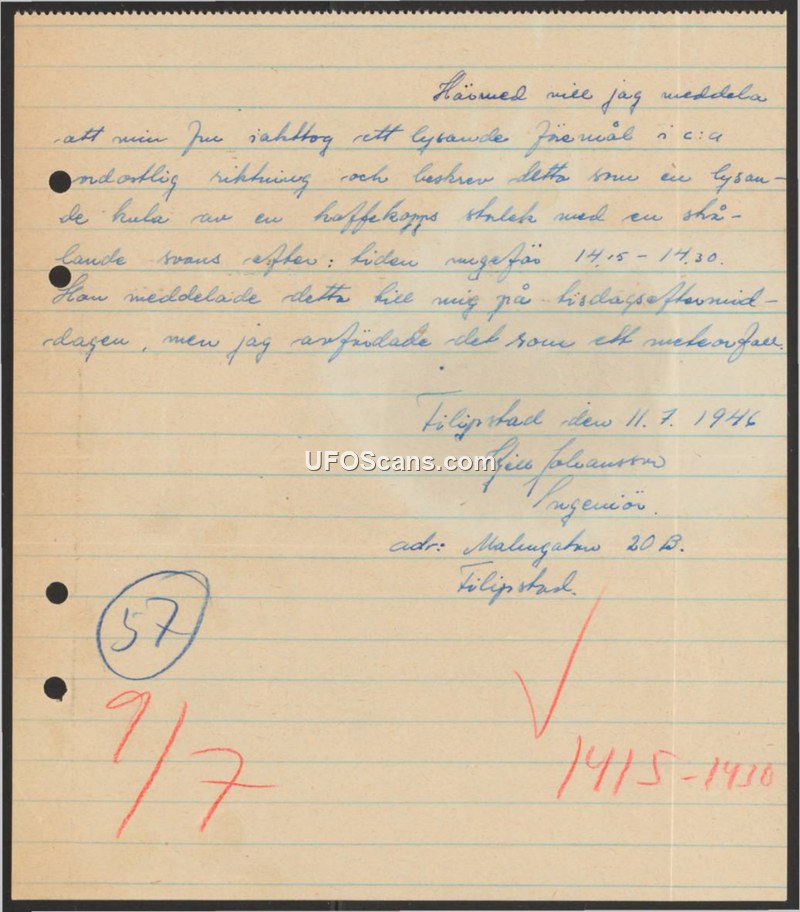 Härmed vill jag meddela
att min fru iakttog ett lysande föremål i c:a
nordostlig riktning och beskrev detta som en lysan-
de kula av en kaffekopps storlek med en strå-
lande svans efter: tiden ungefär 14.15 - 14.30.
Hon meddelade detta till mig på tisdagseftermid-
dagen, men jag avfärdade det som ett meteorfall.
Filipstad den 11.7. 1946
UFOScans.com
Johansson
Ingeniör.
adr: 20 B.
Filipstad.
57
9/7
1415-1430